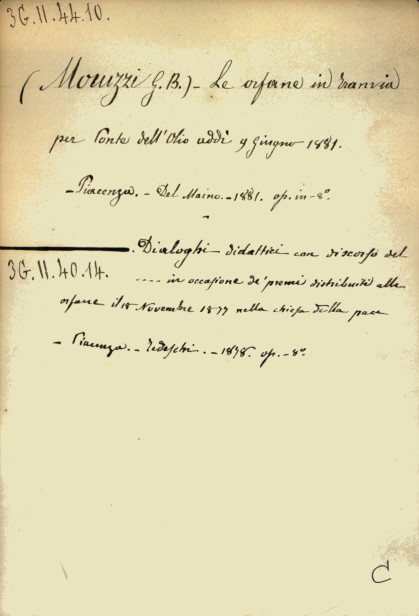 3G.II.44.10.
(Moruzzi G. B.) - Le orfane in Tranvia
per Ponte dell'Olio addì 9 Giugno 1881.
- Piacenza. - Del Maino. - 1881. op. in-8°.
. Dialoghi didattici con discorso del
3G.II.40.14.
.... in occasione de' premi distribuiti alle
orfane il 18 Novembre 1877 nella chiesa della pace
- Piacenza. - Tedeschi. - 1878. op. - 8°.
C